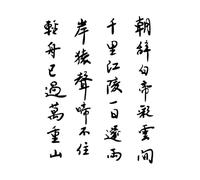 朝辞白帝彩雲間
千里江陵一日還兩
岸猿聲啼不住
輕舟已過萬重山